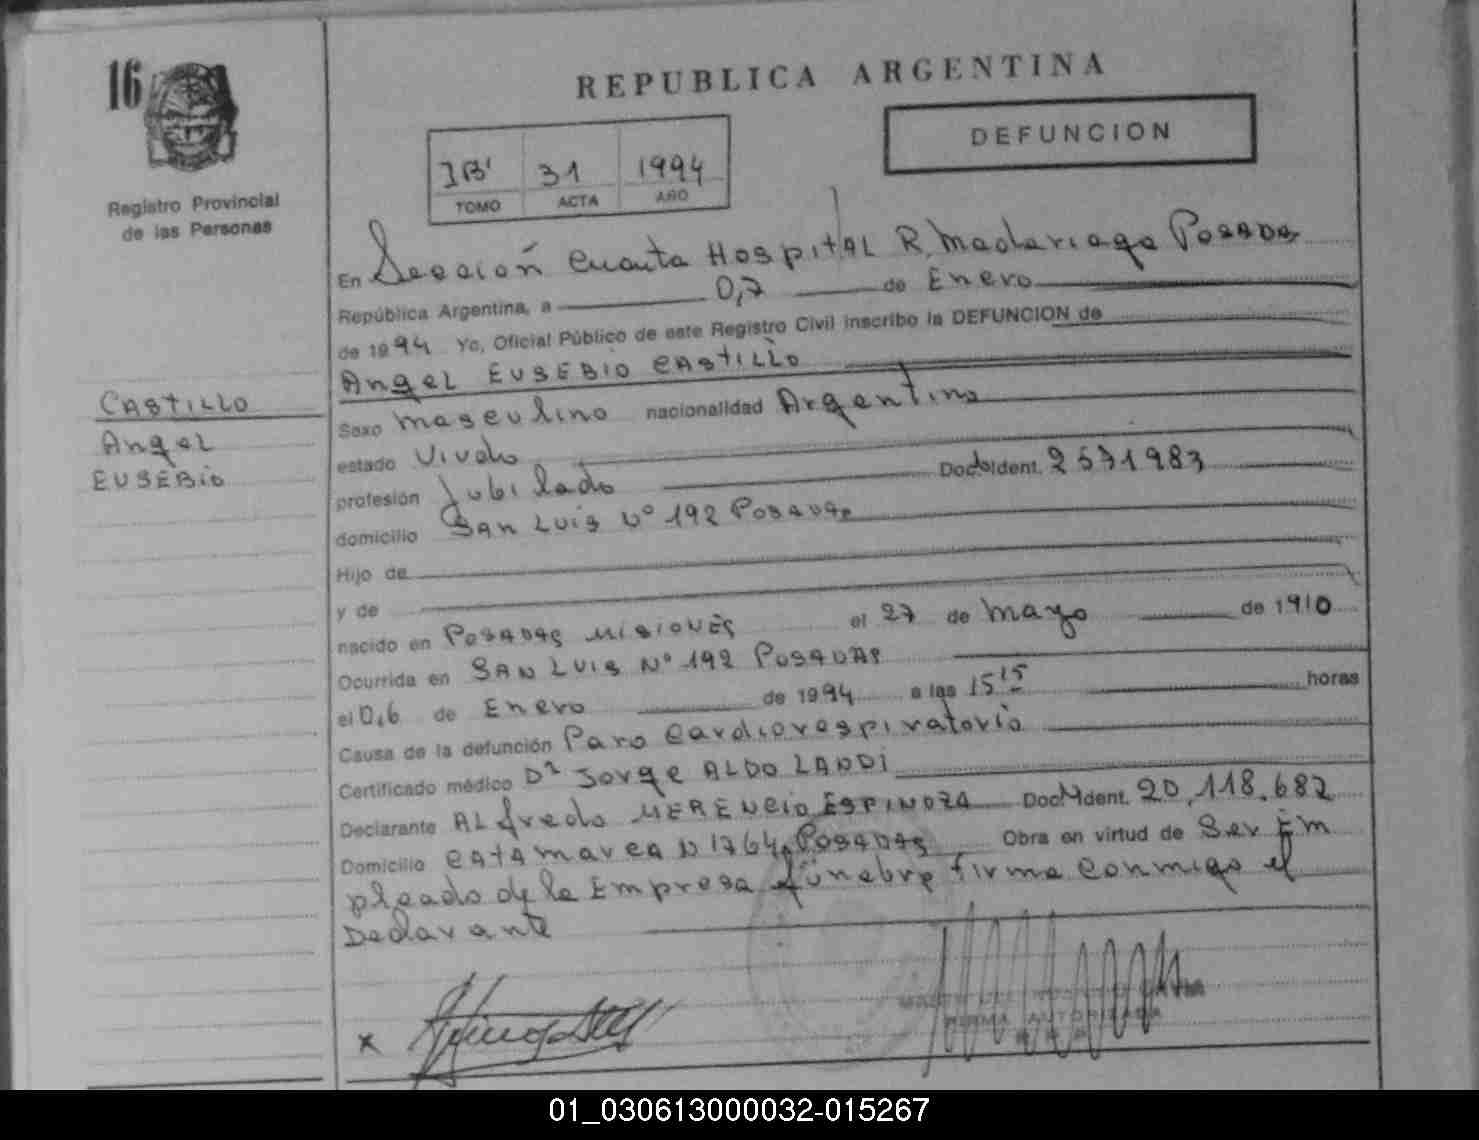 16
REPUBLICA ARGENTINA
DEFUNCION
1B' 31 1994
TOMO ACTA AÑO
Registro Provincial
de las Personas
CASTILLO
Angel
EUSEBio
En Sección Cuarta HospitAL R. Madariaga POSADAS
República Argentina, a 0,7 de Enero
de 1994 Yo, Oficial Público de este Registro Civil inscribo la DEFUNCION de
AngeL EUSEBIO CAStiLLo
Sexo masculino nacionalidad Argentino
estado Viudo
profesión Jubilado Doc. Ident. 2571983
domicilio SAn Luis Nº 192 POSADAS
Hijo de
y de
nacido en POSADAS MISIONES el 27 de Mayo de 1910
Ocurrida en SAN LUIS Nº 192 POSADAS
el 0,6 de Enero de 1994 a las 15 15 horas
Causa de la defunción Paro Cardiorespiratorio
Certificado médico Dr Jorge ALDO LANDI
Declarante ALfredo MERENCio ESPINOZA Doc. Ident. 20.118.682
Domicilio CATAmarca N 1764 POSADAS Obra en virtud de Ser Em
pleado de la Empresa fúnebre firma conmigo el
Declarante
x
FIRMA AUTORIZADA
01_030613000032-015267